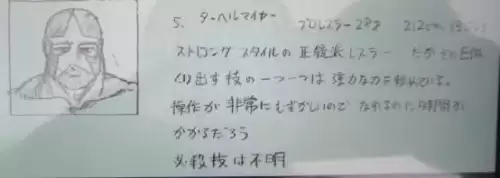 5. ターヘルマイヤー プロレスラー 28才 212cm
ストロング スタイルの 正統派レスラー
くり出す技の一つ一つは強力な力を秘めている。
操作が非常にむずかしいので なれるのに時間が
かかるだろう
必殺技は不明